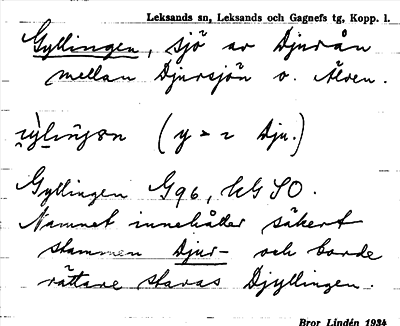 Leksands sn, Leksands och Gagnefs tg, Kopp. l.
Gyllingen, sjö av Djurån
mellan Djursjön o. Älven.
(y = i Dju.)
Gyllingen G96, KG SO.
Namnet innehåller säkert
stammen Djur- och borde
rättare stavas Djyllingen.
Bror Lindén 1934